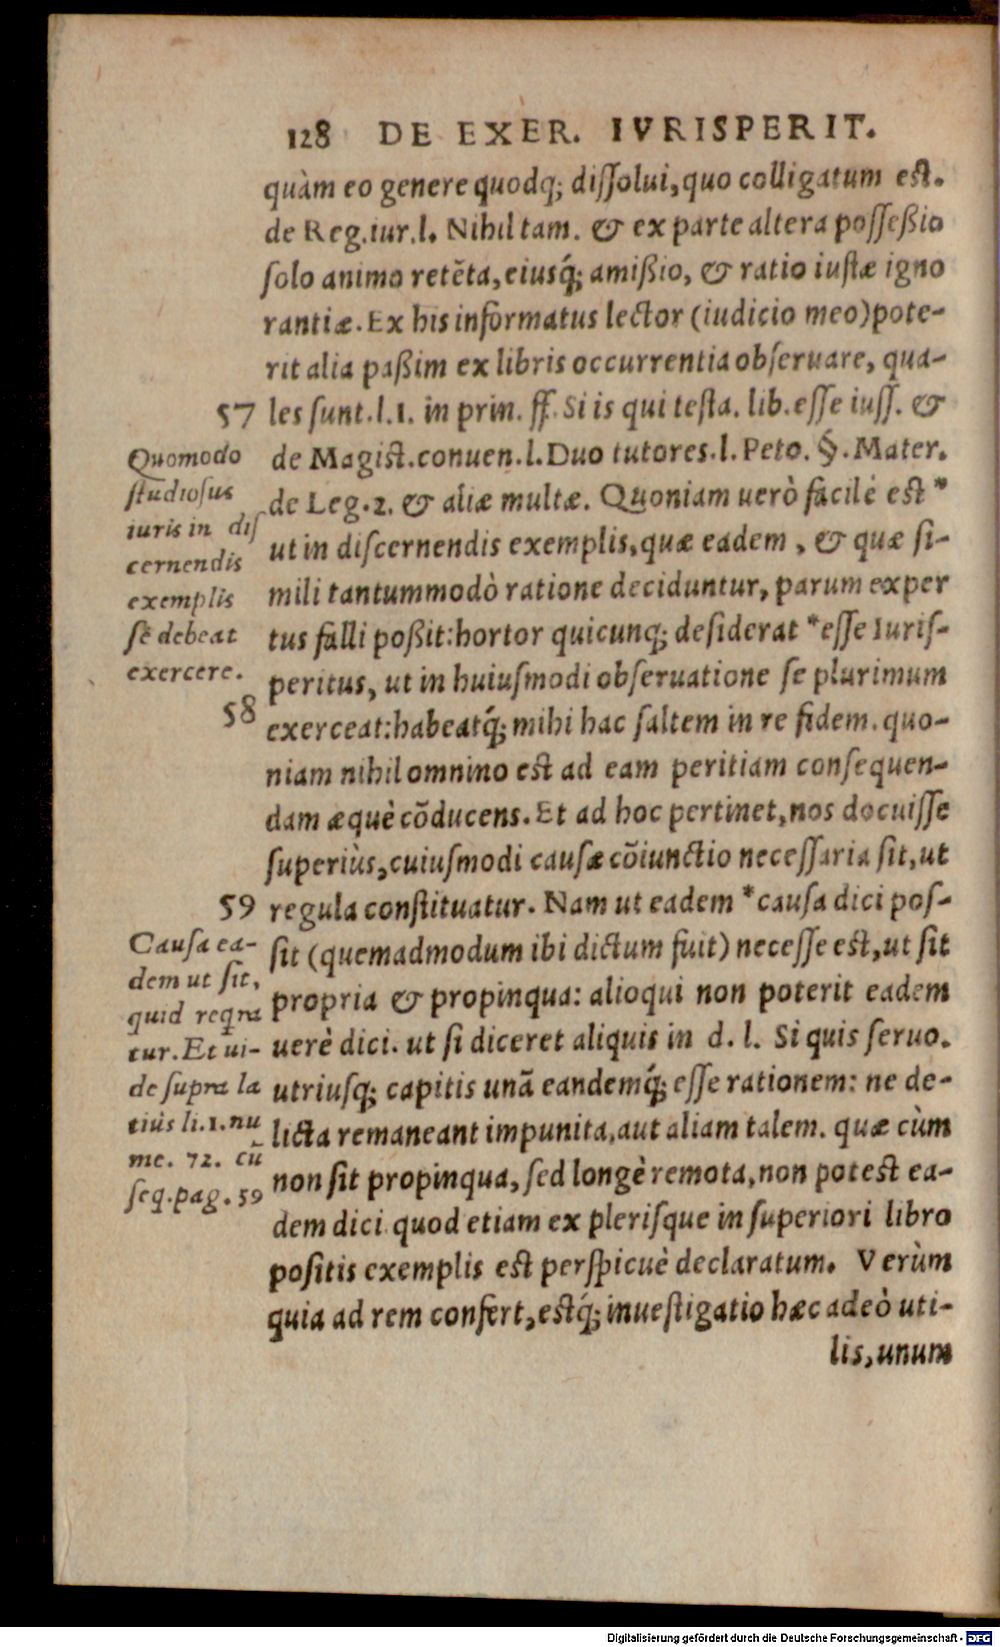 128 DE EXER. IVRISPERIT.
quàm eo genere quodq; diſſolui, quo colligatum est.
de Reg.iur.l. Nihil tam. & ex parte altera poſſeßio
ſolo animo retẽta, eiusq́; amißio, & ratio iustæ igno
rantiæ. Ex his informatus lector (iudicio meo) pote-
rit alia paßim ex libris occurrentia obſeruare, qua-
57 les ſunt.l.1. in prin. ff. Si is qui testa. lib. eſſe iuſſ. &
de Magist. conuen.l. Duo tutores.l. Peto. §. Mater.
de Leg.2. & aliæ multæ. Quoniam uerò facilè est *
ut in diſcernendis exemplis, quæ eadem, & quæ ſi-
mili tantummodò ratione deciduntur, parum exper
tus falli poßit: hortor quicunq; deſiderat * eſſe Iuriſ-
peritus, ut in huiuſmodi obſeruatione ſe plurimum
58 exerceat: habeatq́; mihi hac ſaltem in re fidem. quo-
niam nihil omnino est ad eam peritiam conſequen-
dam æquè cõducens. Et ad hoc pertinet, nos docuiſſe
ſuperiùs, cuiuſmodi cauſæ cõiunctio neceſſaria ſit, ut
59 regula constituatur. Nam ut eadem * cauſa dici poſ-
ſit (quemadmodum ibi dictum fuit) neceſſe est, ut ſit
propria & propinqua: alioqui non poterit eadem
uerè dici. ut ſi diceret aliquis in d. l. Si quis ſeruo.
utriuſq; capitis unã eandemq́; eſſe rationem: ne de-
licta remaneant impunita, aut aliam talem. quæ cùm
non ſit propinqua, ſed longè remota, non potest ea-
dem dici. quod etiam ex pleriſque in ſuperiori libro
poſitis exemplis est perſpicuè declaratum. Verùm
quia ad rem confert, estq́; inuestigatio hæc adeò uti-
lis, unum
Quomodo
studioſus
iuris in diſ
cernendis
exemplis
ſe debeat
exercere.
Cauſa ea-
dem ut ſit,
quid reqra
tur. Et ui-
de ſupra la
tiùs li.1.nu
me. 72. cũ
ſeq.pag.59
Digitalisierung gefördert durch die Deutsche Forschungsgemeinschaft - DFG